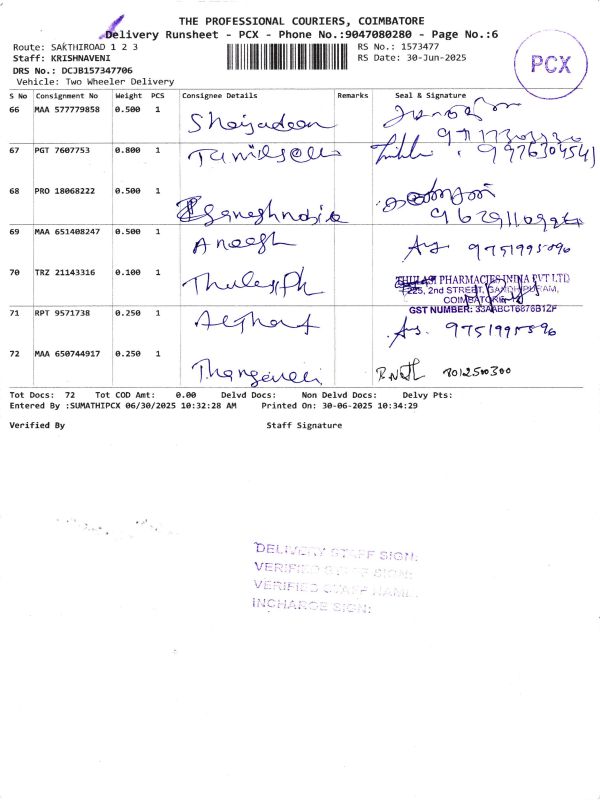 THE PROFESSIONAL COURIERS, COIMBATORE
Delivery Runsheet - PCX - Phone No.:9047080280 - Page No.:6
Route: SAKTHIROAD 1 2 3
Staff: KRISHNAVENI
DRS No.: DCJB157347706
Vehicle: Two Wheeler Delivery
RS No.: 1573477
RS Date: 30-Jun-2025
PCX
S No Consignment No Weight PCS Consignee Details Remarks Seal & Signature
66 MAA 577779858 0.500 1
67 PGT 7607753 0.800 1 9976304541
68 PRO 18068222 0.500 1
69 MAA 651408247 0.500 1 Aneesh 9751995096
70 TRZ 21143316 0.100 1
THULASI PHARMACIES INDIA PVT LTD
225, 2nd STREET, GANDHIPURAM,
COIMBATORE
GST NUMBER: 33AABCT6878B1ZF
71 RPT 9571738 0.250 1
72 MAA 650744917 0.250 1
Tot Docs: 72 Tot COD Amt: 0.00 Delvd Docs: Non Delvd Docs: Delvy Pts:
Entered By :SUMATHIPCX 06/30/2025 10:32:28 AM Printed On: 30-06-2025 10:34:29
Verified By Staff Signature
DELIVERY STAFF SIGN:
VERIFIED STAFF SIGN:
VERIFIED STAFF NAME:
INCHARGE SIGN: